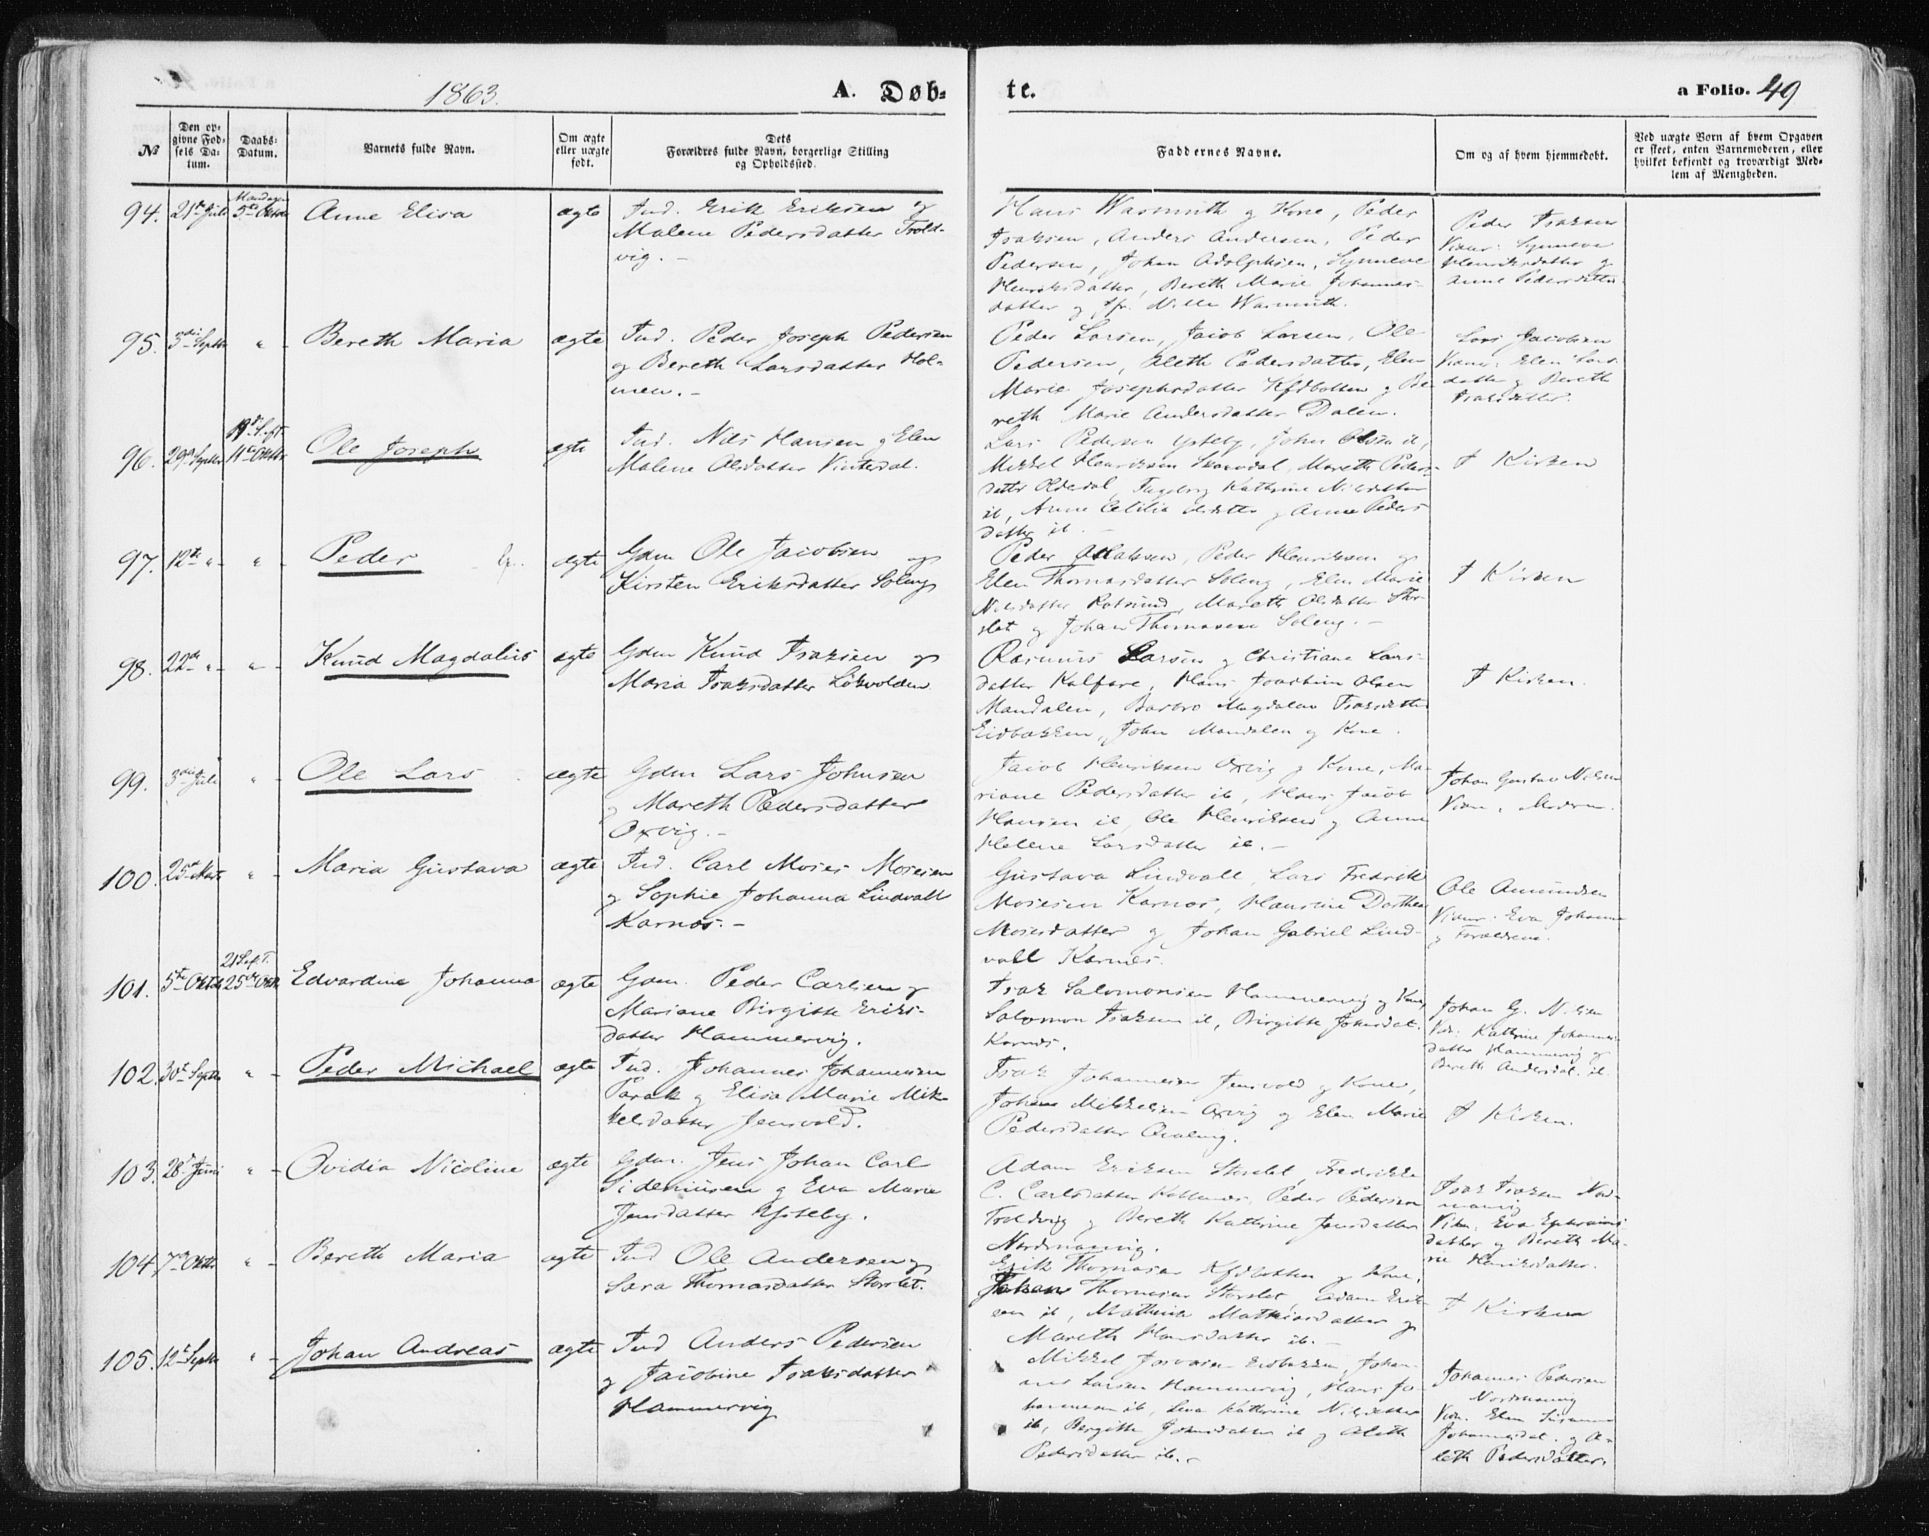 1863.
A. Døb-
te.
a Folio. 49
№
Den op-
givne Fød-
sels Da-
tum.
Daabs-
Datum.
Barnets fulde Navn.
Om ægte
eller uægte
født.
Dets
Forældres fulde Navn, borgerlige Stilling
og Opholdssted.
Faddernes Navne.
Om og af hvem hjemmedøbt.
Ved uægte Børn af hvem Opgaven
er skeet, enten Barnemoderen, eller
hvilket bekjendt og troværdigt Med-
lem af Menigheden.
94. 21de Juli
Mandagen
5te Oktbr
Anne Elisa
ægte
Ind. Erik Eriksen og
Malene Pedersdatter Trold-
vig. -
Hans Warmuth og Kone, Peder
Isaksen, Anders Andersen, Peder
Pedersen, Johan Adolphsen, Synneve
Henriksdatter, Bereth Marie Johannes-
datter og Warmuth.
Peder Isaksen
Vidner: Synneve
Henriksdatter og
Anne Pedersdatter
95. 3die Septbr " -
Bereth Maria
ægte
Ind. Peder Joseph Pedersen
og Bereth Larsdatter Hol-
men. -
Peder Larsen, Jacob Larsen, Ole
Pedersen, Aleth Pedersdatter, Elen
Marie Josephsdatter Kfdbotten og Be-
reth Marie Andersdatter Dalen.
Lars Jacobsen
Vidner: Elen Lars-
datter og Bereth
Isaksdatter.
96. 29de Septbr
11te Oktbr
Ole Joseph
ægte
Ind. Nils Hansen og Elen
Malene Olsdatter Vinterdal.
Lars Pedersen Ysteby, John Olsen ib,
Mikkel Henriksen Skovdal, Mareth Peders-
datter Kathrine Nilsdatter
ib, Anne Cecilia og Anne Peders
datter ib -
I Kirken
97. 12te " - " -
Peder
ægte
Gdm Ole Jacobsen og
Kirsten Eriksdatter Soleng
Peder Henriksen og
Elen Thomasdatter Soleng, Elen Marie
Nilsdatter Rotsund, Mareth Olsdatter Stor-
slet og Johan Thomasen Soleng. -
I Kirken
98. 22de " - " -
Knud Magdalius
ægte
Gdm Knud Isaksen og
Maria Isaksdatter Løkvolden
Rasmus Larsen og Christiane Lars-
datter Kalfare, Hans Joachim Olsen
Mandalen, Barbro Magdalene Isaksdatter
Eidbakken, John Mandalen og Kone.
I Kirken.
99. 3die Juli " -
Ole Lars
ægte
Gdm Lars Johnsen
og Mareth Pedersdatter
Oxvig. -
Jacob Henriksen Oxvig og Kone, Ma-
riane Pedersdatter ib, Hans Jacob
Hansen ib, Ole Henriksen og Anne
Helene Larsdatter ib. -
Johan Gustav Nilsen
Vidne, Moderen
100. 25de Marts " -
Maria Gustava
ægte
Ind. Carl Moses Mosesen
og Sophie Johanna Lindvall
Karnes. -
Gustava Lindvall, Lars Fredrik
Mosesen Karnes, Dorthea
Mosesdatter og Johan Gabriel Lind-
vall Karnes.
Ole Amundsen
Vidner: Eva Johanne
og Forældrene.
101. 5te Oktbr
21 Sept.
25de Oktbr
Edvardine Johanna
ægte
Gdm. Peder Carlsen og
Mariane Birgitte Eriks-
datter Hammervig.
Isak Salomonsen Hammervig og Kone,
Salomon Isaksen ib, Birgitte Johnsdat.
Karnes.
Johan G. Nilsen
Vid. Kathrine Johannes-
datter Hammervig og
Bereth Andersdat. ib.
102. 30te Septbr " -
Peder Michael
ægte
Ind. Johannes Johannesen
Parak og Elisa Marie Mik-
kelsdatter Jensvold.
Isak Johannesen Jensvold og Kone,
Johan Mikkelsen Oxvig og Elen Marie
Pedersdatter
I Kirken.
103. 28de Juni " -
Ovidia Nicoline
ægte
Gdm. Jens Johan Carl
Sideniusen og Eva Marie
Jensdatter Ysteby.
Adam Eriksen Storslet, Fredrikke
C. Carlsdatter Peder Pedersen
Troldvig og Bereth Kathrine Jensdatter
Nordmanvig.
Isak Isaksen Nord-
manvig
Vidn. Eva Ephraims-
datter og Bereth Ma-
rie Henriksdatter.
104. 7de Oktbr " -
Bereth Maria
ægte
Ind Ole Andersen og
Sara Thomasdatter Storslet.
Erik Thomasen Kfdbotten og Kone,
Johan Thomasen Storslet, Adam Erik-
sen ib, Mathea Mathiasdatter og
Mareth Hansdatter ib. -
I Kirken
105. 12te Septbr " -
Johan Andreas
ægte
Ind Anders Pedersen
og Jacobine Isaksdatter
Hammervig
Mikkel Eidbakken, Johan-
nes Larsen Hammervig, Hans Jo-
hannesen ib, Kathrine Nilsdatter
ib, Bergitte Johnsdatter ib og Aleth
Pedersdatter ib. -
Johannes Pedersen
Nordmanvig
Vidn. Elen Susanne
Johannesdat. og A-
leth Pedersdatter.